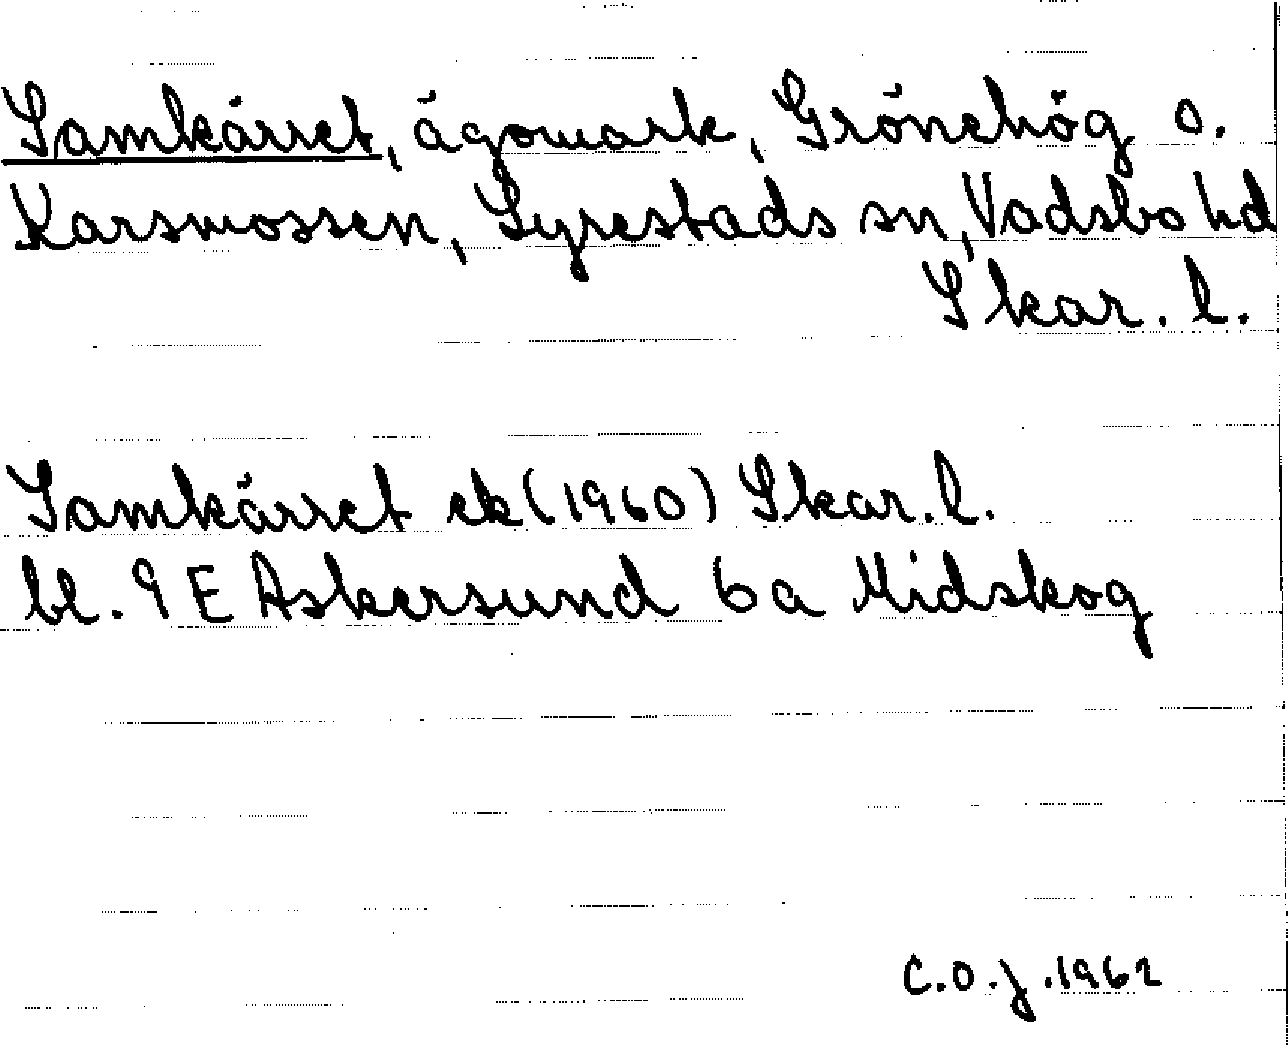 Samkärret, ägomark, Grönehög o.
Karsmossen, Lyrestads sn, Vadsbo hd
Skar. l.
Samkärret ek (1960) Skar. l.
bl. 9 E Askersund 6 a Midskog
C.O.J. 1962